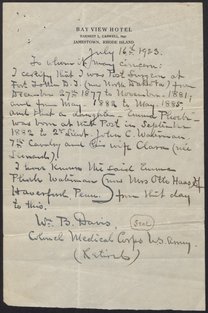 BAY VIEW HOTEL
JAMESTOWN, RHODE ISLAND
July 16th 1923.
To whom it may concern:
I certify that I was Post Surgeon at
from
December 27th 1877 to November 1881,
and from May 1882 to May 1885
and that a daughter - Emma Phoebe -
was born at that Post in September
1882 to 2d Lieut. John C. Waterman
7th Cavalry and his wife Clara (née
I have known the said Emma
Phoebe Waterman (now Mrs Otto Haas) of
Haverford Penn. from that day
to this.
Wm B. Davis (Seal)
Colonel Medical Corps U.S. Army
(Retired)